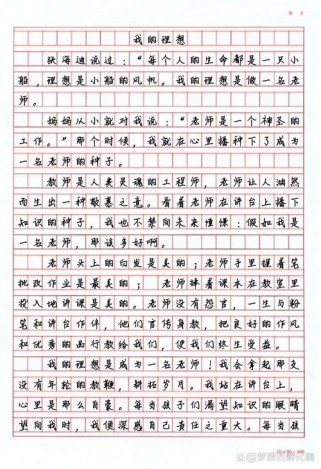 我的理想
张海迪说过：“每个人的生命都是一只小
船，理想是小船的风帆。我的理想是做一名老
师。
妈妈从小就对我说：“老师是一个神圣的
工作。”那个时候，我就在心里播种下了成为
一名老师的种子。
教师是人类灵魂的工程师，老师让人油然
而生出一种敬慕之意。看着老师在讲台上播下
知识的种子，我也不禁向未来憧憬：假如我是
一名老师，那该多好啊。
老师头上的白发是美的；老师手里握着笔
批改作业是最美的；老师捧着课本在教室里
投入地讲课是美的。老师没有怨言，一生与粉
笔和讲台作伴，他们言传身教，把良好的作风
和优秀的品行教给我们，使我们终生受益。
我的理想是成为一名老师！我会拿起那支
没有年轮的教鞭，耕拓岁月。我站在讲台上，
心里是那么自豪。每当孩子们渴望知识的眼睛
望向我时，我便深感自己责任之重大。每当我